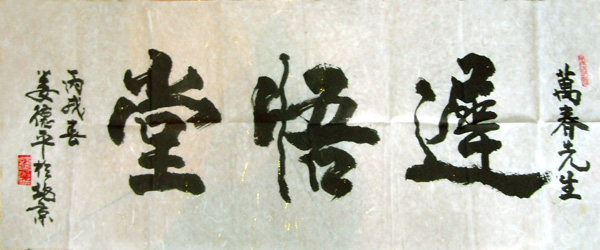 萬春先生
遲悟堂
丙戌春
姜德平於北京